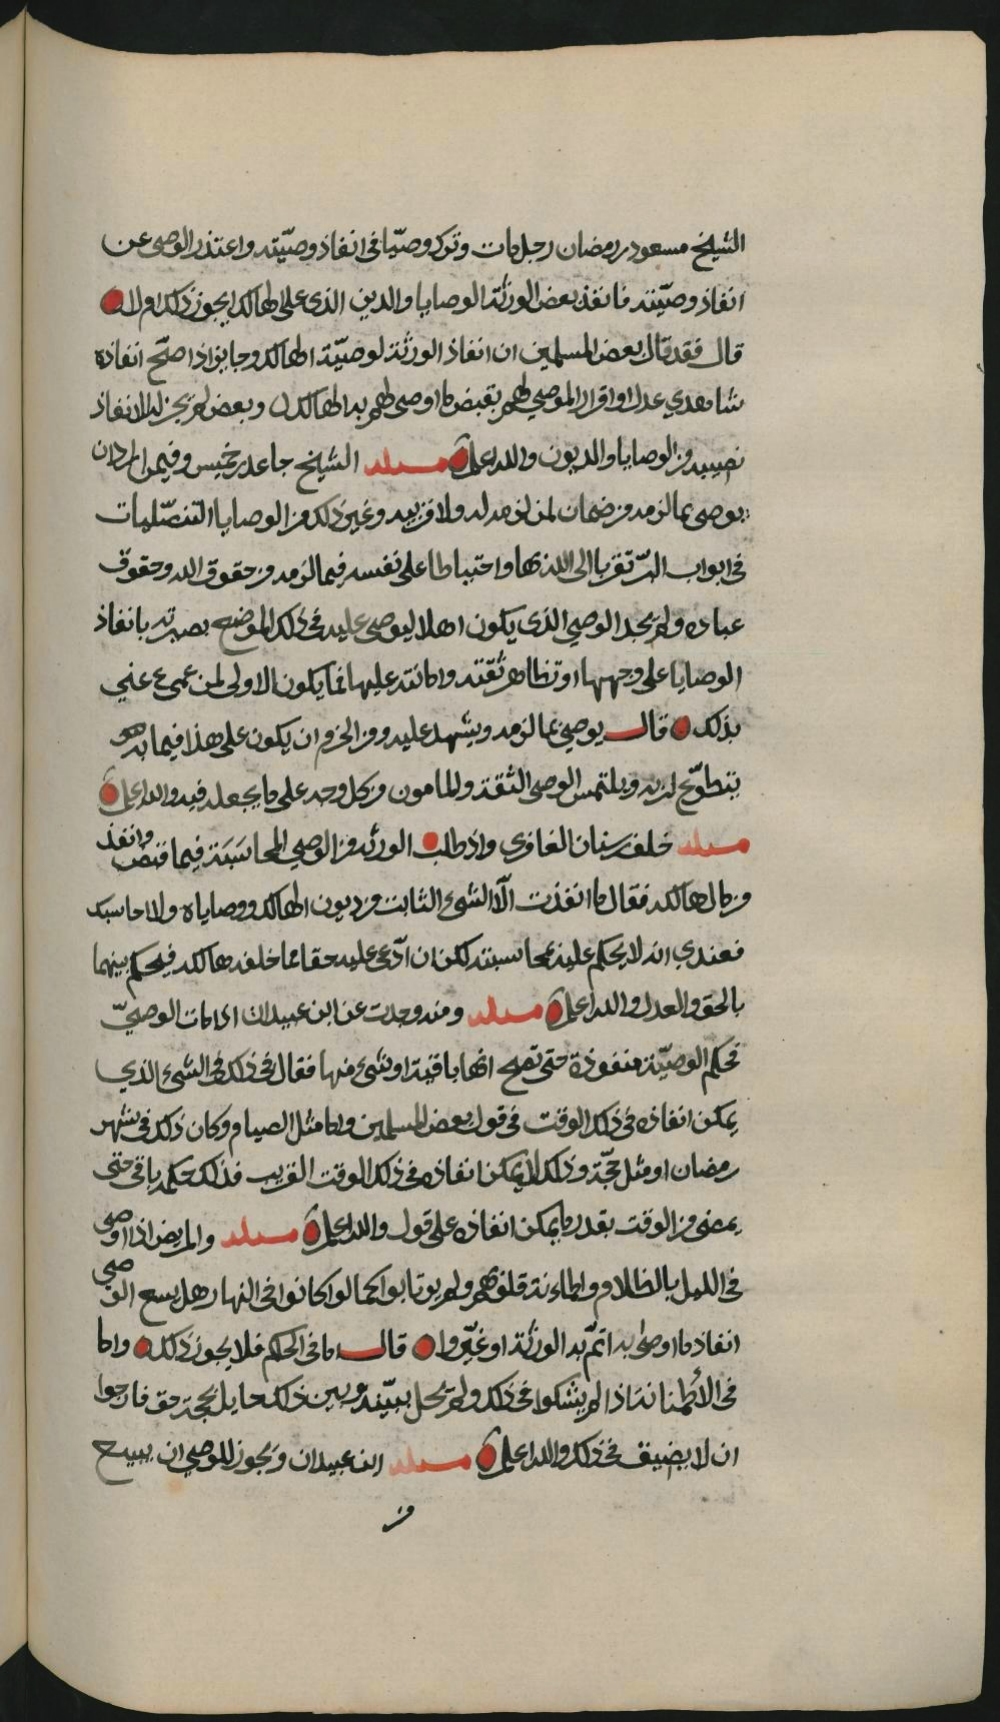 الشيخ مسعود بن رمضان رجل مات وترك وصيّا في انفاذ وصيّته واعتذر الوصي عن
انفاذ وصيّته فانفذ بعض الورثة الوصايا والدين الذي على الهالك ايجوز ذلك ام لا
قال فقد قال بعض المسلمين ان انفاذ الورثة لوصيّة الهالك وجايز اذا صحّ انفاذه
شاهدي عدل او اقرار الموصي لهم بقبض ما اوصى لهم به الهالك وبعض لم يجز له الانفاذ
نصيبه من الوصايا والديون والله اعلم مسئلة الشيخ جاعد بن خميس وفيمن اراد ان
يوصي بما لزمه من ضمان لمن لزمه له ولاقربيه وغير ذلك من الوصايا التنصّليات
في ابواب البرّ تقربا الى الله بها واحتياطا على نفسه فيما لزمه من حقوق الله وحقوق
عباده ولم يجد الوصي الذي يكون اهلا ليوصى عليه في ذلك الموضع بانفاذ
الوصايا على وجهها او تظاهر ثقته وامانته عليها فما يكون الاولى لمن عني
بذلك قال يوصي بما لزمه ويشهد عليه ومن الحزم ان يكون على هذا فيما
يتطوّع لربه ويلتمس الوصي الثقة والمامون وكل وحد على ما يجعله فيه والله اعلم
مسئلة خلف بن سنان الغافري واذ طلب الورثة من الوصي المحاسبة فيما قبض وانفذ
من مال هالكه فقال ما انفذت الّا الشيء الثابت من ديون الهالك ووصاياه ولا احاسبك
فعندي انه لا يحكم عليه بمحاسبته لكن ان ادّعى عليه حقا مما خلفه هالكه فيحكم بينهما
بالحق والعدل والله اعلم مسئلة ومنه وجدت عن ابن عبيدان اذا مات الوصيّ
فحكم الوصيّة منفوذة حتى تصح انها باقية او شيء منها فقال في ذلك في الشيء الذي
يمكن انفاذه في ذلك الوقت في قول بعض المسلمين واما مثل الصيام وكان ذلك في شهر
رمضان او مثل حجّة وذلك لا يمكن انفاذه في ذلك الوقت القريب فذلك حكمه باقي حتى
يمضي من الوقت بقدر ما يمكن انفاذه على قول والله اعلم مسئلة والمريض اذا اوصى
في الليل بالظلام واطماءنة قلوبهم ولم يرتابوا كما لو كانوا في النهار هل يسع الوصي
انفاذ ما اوصى به اتمّ به الورثة او غيّروا قال اما في الحكم فلا يجوز ذلك واما
في الاطمئنانة اذا لم يشكوا في ذلك ولم يحل بينه وبين ذلك حايل بحجة حق فارجوا
ان لا يضيق في ذلك والله اعلم مسئلة ابن عبيدان ويجوز للوصي ان يبيع
من